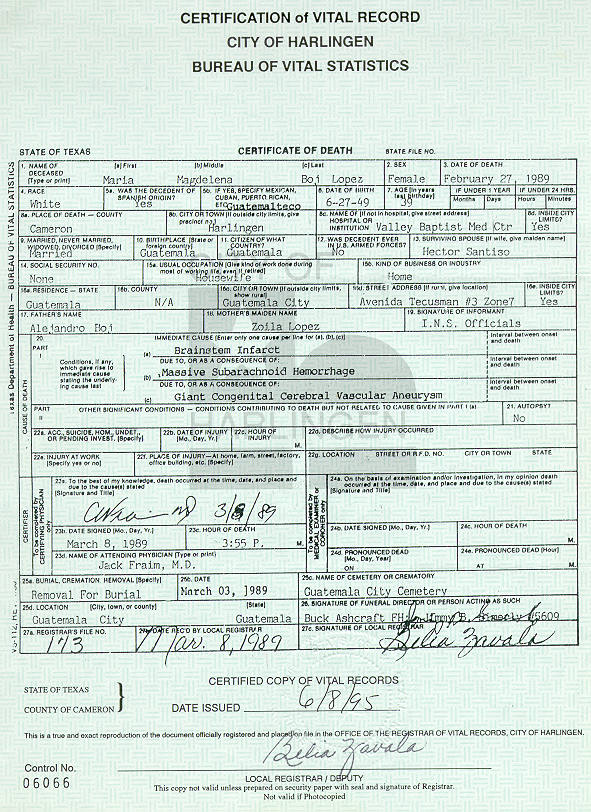 CERTIFICATION of VITAL RECORD
CITY OF HARLINGEN
BUREAU OF VITAL STATISTICS
STATE OF TEXAS CERTIFICATE OF DEATH STATE FILE NO.
1. NAME OF DECEASED (Type or print) (a) First (b) Middle (c) Last 2. SEX 3. DATE OF DEATH
Maria Magdelena Boj Lopez Female February 27, 1989
4. RACE 5a. WAS THE DECEDENT OF SPANISH ORIGIN? 5b. IF YES, SPECIFY MEXICAN, CUBAN, PUERTO RICAN, ETC. 6. DATE OF BIRTH 7. AGE (In years last birthday) IF UNDER 1 YEAR IF UNDER 24 HRS.
Months Days Hours Minutes
White Yes Guatemalteco 6-27-49 39
8a. PLACE OF DEATH — COUNTY 8b. CITY OR TOWN (If outside city limits, give precinct no.) 8c. NAME OF (If not in hospital, give street address) HOSPITAL OR INSTITUTION 8d. INSIDE CITY LIMITS?
Cameron Harlingen Valley Baptist Med Ctr Yes
9. MARRIED, NEVER MARRIED, WIDOWED, DIVORCED (Specify) 10. BIRTHPLACE (State or foreign country) 11. CITIZEN OF WHAT COUNTRY? 12. WAS DECEDENT EVER IN U.S. ARMED FORCES? 13. SURVIVING SPOUSE (If wife, give maiden name)
Married Guatemala Guatemala No Hector Santiso
14. SOCIAL SECURITY NO. 15a. USUAL OCCUPATION (Give kind of work done during most of working life, even if retired) 15b. KIND OF BUSINESS OR INDUSTRY
None Housewife Home
16a. RESIDENCE — STATE 16b. COUNTY 16c. CITY OR TOWN (If outside city limits, show rural) 16d. STREET ADDRESS (If rural, give location) 16e. INSIDE CITY LIMITS?
Guatemala N/A Guatemala City Avenida Tecusman #3 Zone7 Yes
17. FATHER'S NAME 18. MOTHER'S MAIDEN NAME 19. SIGNATURE OF INFORMANT
Alejandro Boj Zoila Lopez I.N.S. Officials
20. IMMEDIATE CAUSE (Enter only one cause per line for (a), (b), (c)) Interval between onset and death
PART I (a) Brainstem Infarct
Conditions, if any, which gave rise to immediate cause stating the underlying cause last
DUE TO, OR AS A CONSEQUENCE OF: Interval between onset and death
(b) Massive Subarachnoid Hemorrhage
DUE TO, OR AS A CONSEQUENCE OF: Interval between onset and death
(c) Giant Congenital Cerebral Vascular Aneurysm
PART II OTHER SIGNIFICANT CONDITIONS — CONDITIONS CONTRIBUTING TO DEATH BUT NOT RELATED TO CAUSE GIVEN IN PART I (a) 21. AUTOPSY?
No
22a. ACC., SUICIDE, HOM., UNDET., OR PENDING INVEST. (Specify) 22b. DATE OF INJURY (Mo., Day, Yr.) 22c. HOUR OF INJURY M. 22d. DESCRIBE HOW INJURY OCCURRED
22e. INJURY AT WORK (Specify yes or no) 22f. PLACE OF INJURY—At home, farm, street, factory, office building, etc. (Specify) 22g. LOCATION STREET OR R.F.D. NO. CITY OR TOWN STATE
CAUSE OF DEATH
CERTIFIER
To be completed by CERTIFYING PHYSICIAN ONLY
23a. To the best of my knowledge, death occurred at the time, date, and place and due to the cause(s) stated (Signature and Title)
3/8/89
To be completed by MEDICAL EXAMINER or CORONER only
24a. On the basis of examination and/or investigation, in my opinion death occurred at the time, date and place and due to the cause(s) stated (Signature and Title)
23b. DATE SIGNED (Mo., Day, Yr.) 23c. HOUR OF DEATH 24b. DATE SIGNED (Mo., Day, Yr.) 24c. HOUR OF DEATH
March 8, 1989 3:55 P. M. M.
23d. NAME OF ATTENDING PHYSICIAN (Type or print) 24d. PRONOUNCED DEAD (Mo., Day, Year) 24e. PRONOUNCED DEAD (Hour)
Jack Fraim, M.D. ON AT M.
25a. BURIAL, CREMATION, REMOVAL (Specify) 25b. DATE 25c. NAME OF CEMETERY OR CREMATORY
Removal For Burial March 03, 1989 Guatemala City Cemetery
25d. LOCATION (City, town, or county) (State) 26. SIGNATURE OF FUNERAL DIRECTOR OR PERSON ACTING AS SUCH
Guatemala City Guatemala Buck Ashcraft FH, Jimmy B. #5609
27a. REGISTRAR'S FILE NO. 27b. DATE REC'D BY LOCAL REGISTRAR 27c. SIGNATURE OF LOCAL REGISTRAR
143 Mar. 8, 1989 Belia Zavala
Texas Department of Health — BUREAU OF VITAL STATISTICS
CERTIFIED COPY OF VITAL RECORDS
STATE OF TEXAS
COUNTY OF CAMERON
DATE ISSUED 6/8/95
This is a true and exact reproduction of the document officially registered and placed on file in the OFFICE OF THE REGISTRAR OF VITAL RECORDS, CITY OF HARLINGEN.
Belia Zavala
Control No.
06066
LOCAL REGISTRAR / DEPUTY
This copy not valid unless prepared on security paper with seal and signature of Registrar.
Not valid if Photocopied